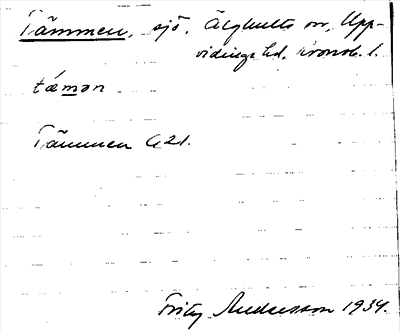 Tämmen, sjö. Älghults sn, Upp-
vidinge hd. Kronob. l.
tæmən
Tämmen G21.
Fritz Andersson 1934.